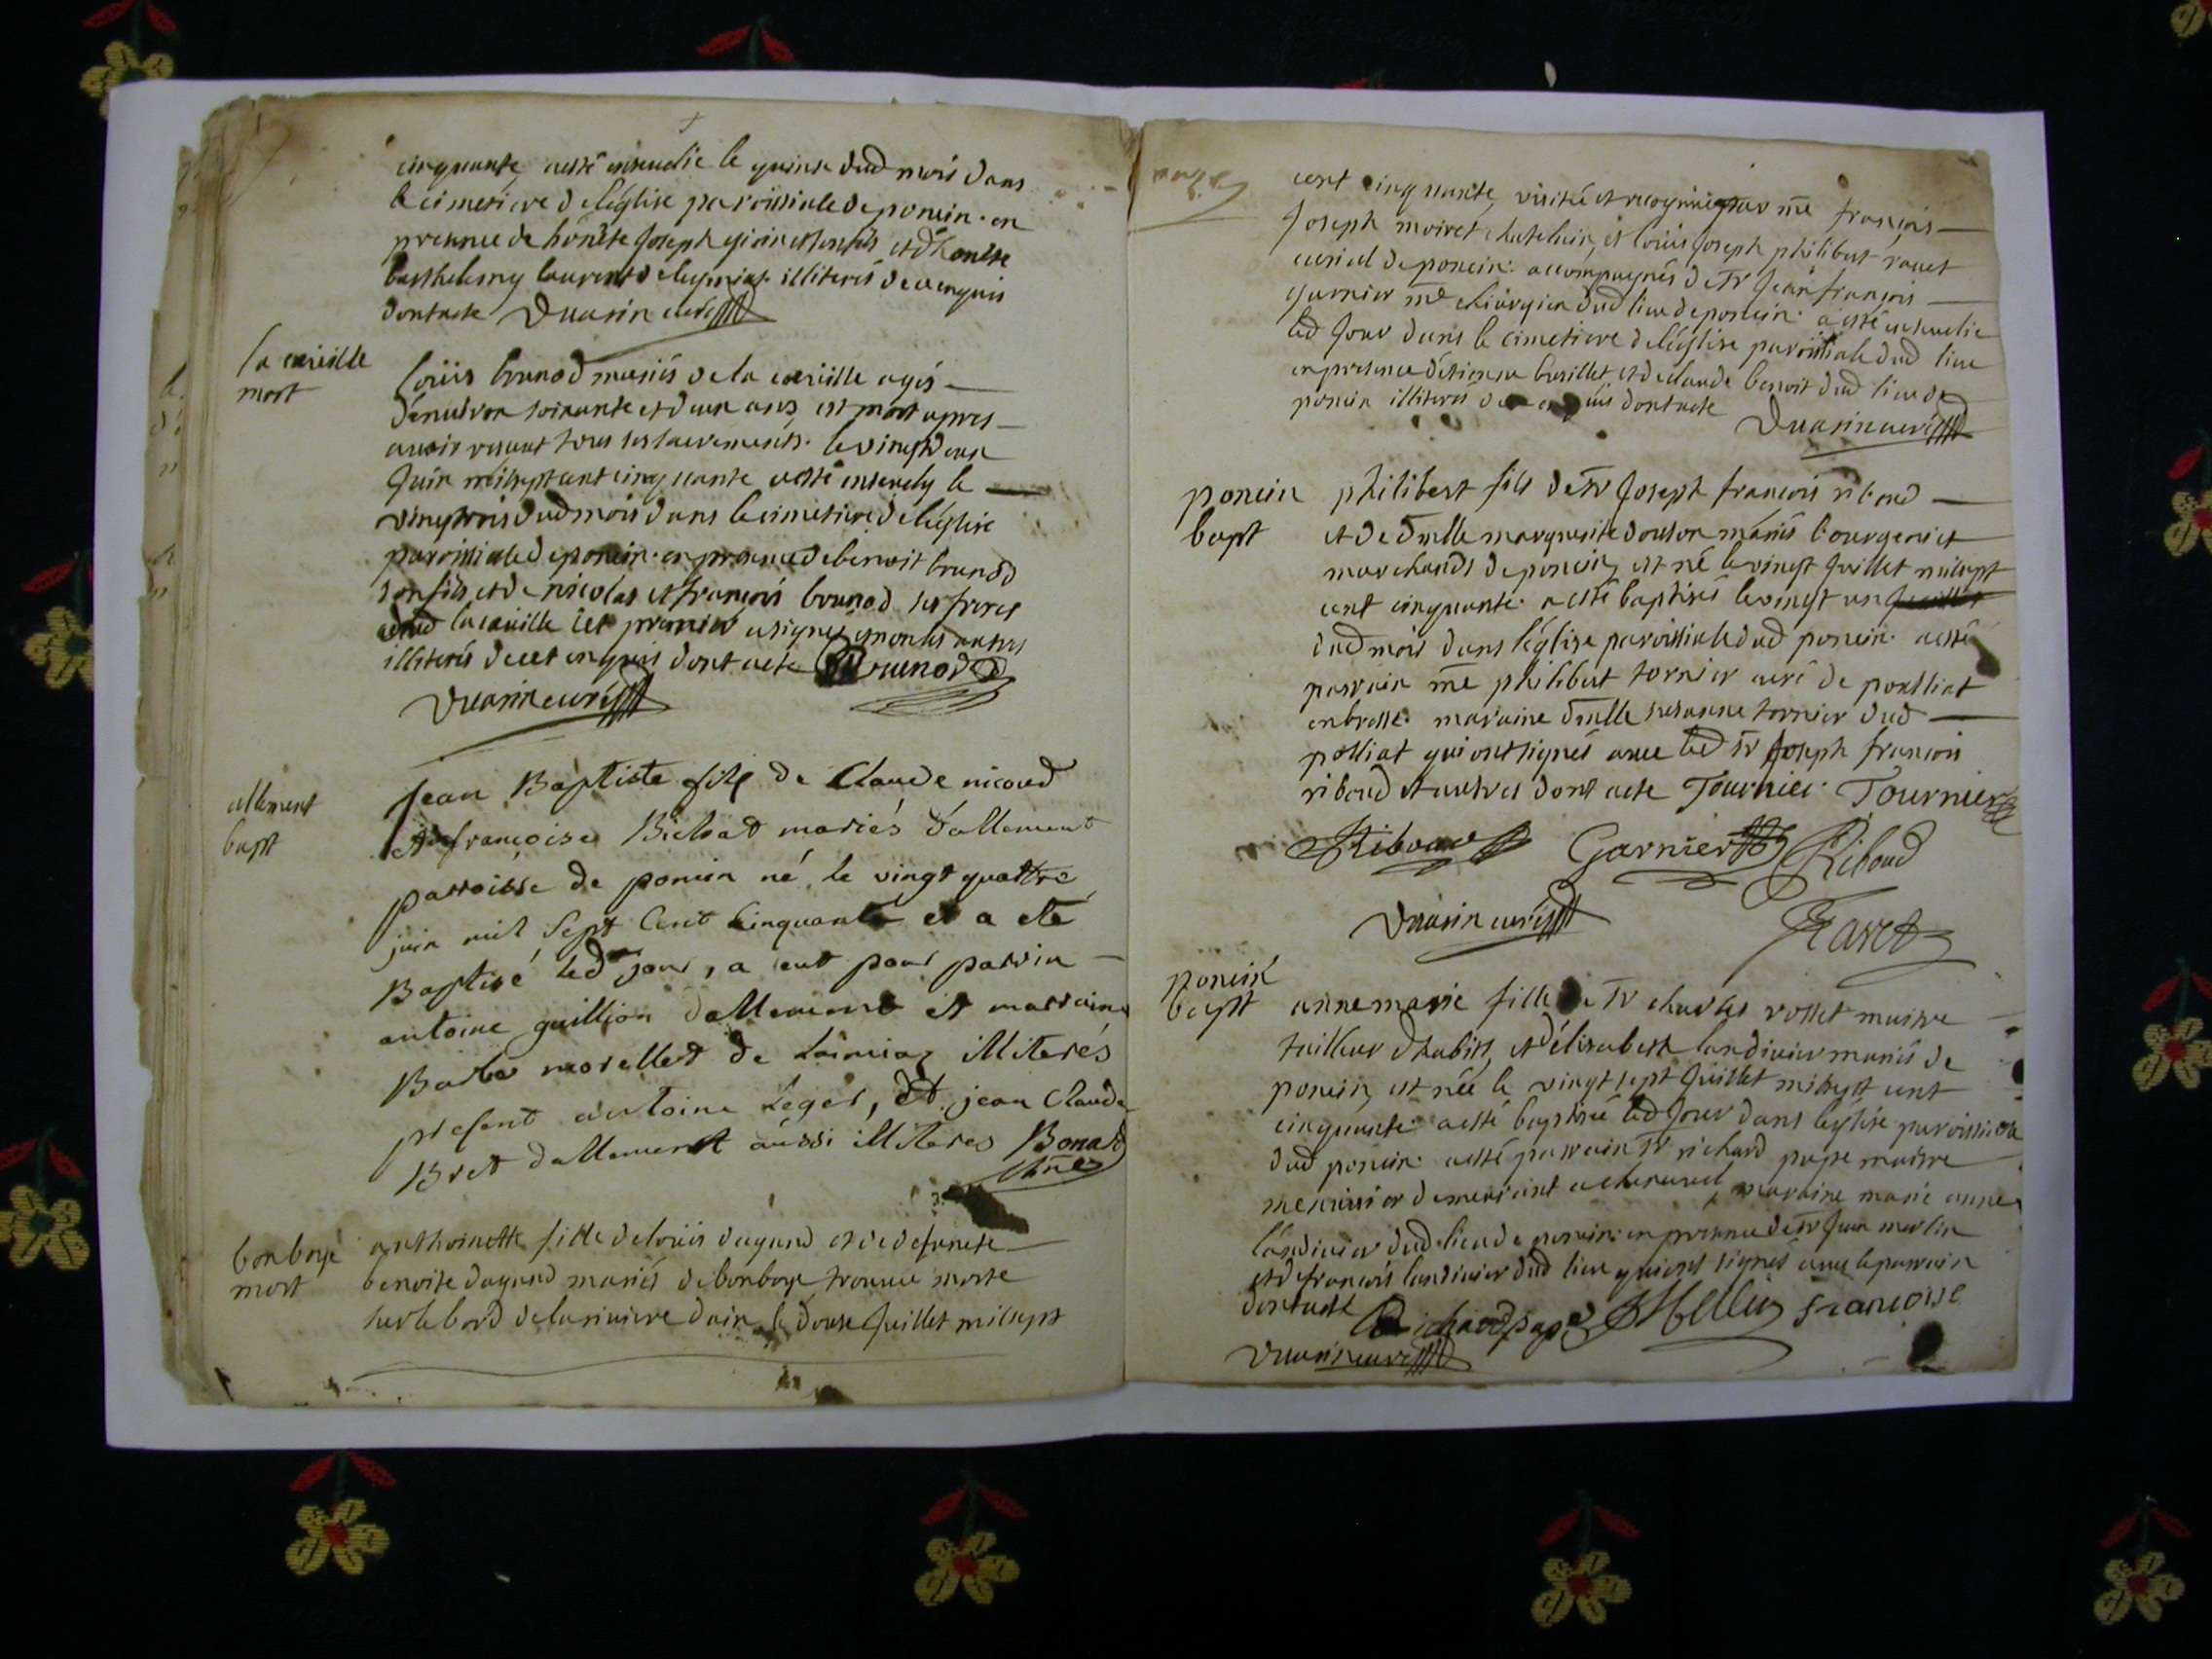 cinquante, aesté ensevelie le quinze dud mois dans
le cimetiere de leglise paroissiale de poncin. en
presence de honéte Joseph son fils et dhonéte
barthelemy laurent illiterés de ce enquis
dont acte Duasin curé
la cueille
mort
loüis brunod mariés de la cueille agés
dénuiron soixante et deux ans, est mort apres
auoir receut tous ses sacrements. le vingtdeux
Juin milsept cent cinquante aesté enseuely le
vingttrois dud mois dans le cimetiere de léglise
paroissiale de poncin. en presence de benoit brunod
son fils et de nicolas et françois brunod ses freres
dud lacueille le premier a signé et non les autres
illiterés de cet enquis dont acte Brunod
Duasin curé
allement
bapt
Jean Baptiste fils de Claude nicoud
et françoise Bichat mariés d'allement
parroisse de poncin né le vingt quattre
juin mil sept Cent Cinquante et a eté
Baptisé led jour, a eut pour parrin
antoine guillion dallement et marraine
Barbe morellet de illiterés
present antoine Leger, et jean Claude
Bret dallement aussi illiteres Bonard
bonboye
mort
anthoinette fille de loüis dagand et de defuncte
benoite dagand mariés de bonboye trouuee morte
sur le bord de la riuiere dain le douse Juillet milsept
cent cinquante, visitée et recognüe par mē françois
Joseph moiret chatelain, et loüis Joseph philibert rauet
curial de poncin. accompagnés de sr Jean françois
garnier mē chirurgien dud lieu de poncin. a esté enseuelie
led Jour dans le cimetiere de léglise paroissiale dud lieu
en presence détienne burillet et de claude benoit dud lieu de
poncin illiterés de ce enquis dont acte Duasin curé
poncin
bapt
philibert fils de sr Joseph francois riboud
et de dmlle marguerite mariés bourgeois et
marchands de poncin, est né le vingt Juillet milsept
cent cinquante. aesté baptisés le vingt un Juillet
dud mois dans léglise paroissiale dud poncin. aesté
parrain mē philibert tornier curé de poulliat
en bresse. maraine dmlle susanne tornier dud
polliat qui ont signés auec led sr Joseph francois
riboud et autres dont acte Tournier Tournier
Riboud Garnier Riboud
Duasin curé Rauet
poncin
bapt
anne marie fille de sr charles rosset maitre
tailleur dhabits, et délisabeth landinier mariés de
poncin, est née le vingt sept Juillet milsept cent
cinquante. aesté baptisée led Jour dans léglise paroissiale
dud poncin. aesté parrain sr richard pape maitre
menuisier demeurant a maraine marie anne
landinier dud lieu de poncin. en presence de sr Jean merlin
et de francois landinier dud lieu qui ont signés auec le parrain
dont acte Richard pape francoise
Duasin curé